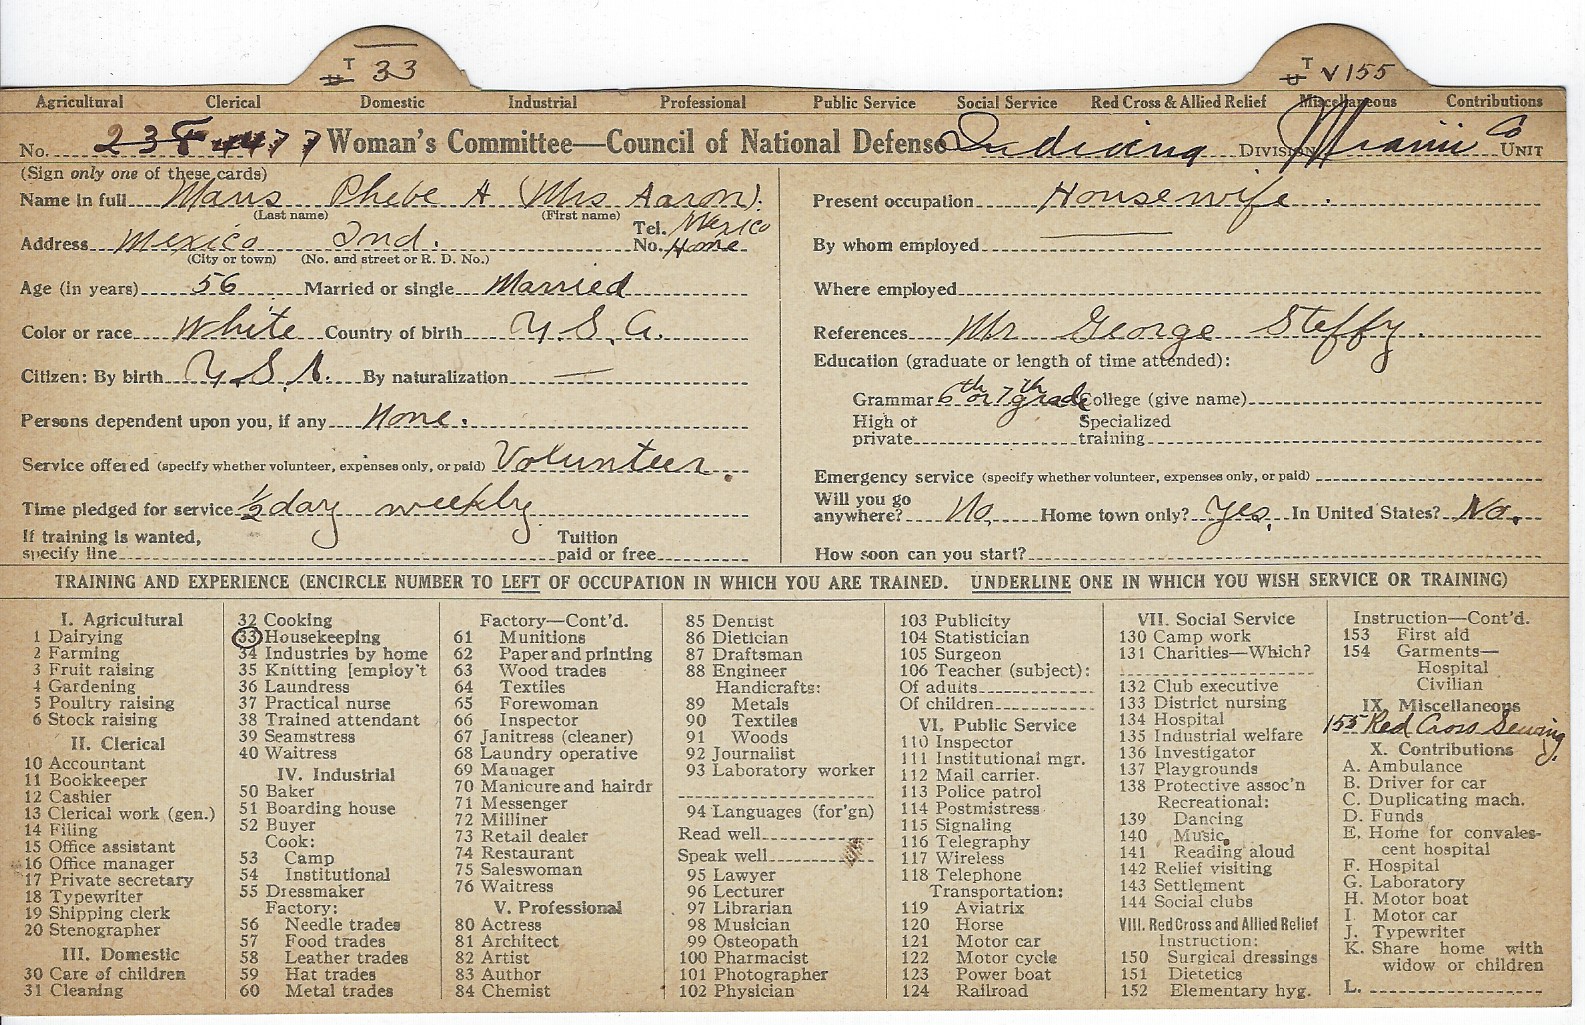 T 33
T V 155
Agricultural Clerical Domestic Industrial Professional Public Service Social Service Red Cross & Allied Relief Miscellaneous Contributions
No. 77 Woman's Committee—Council of National Defense Indiana DIVISION Miami Co UNIT
(Sign only one of these cards)
Name in full Maus Phebe A (Mrs Aaron).
(Last name) (First name)
Address Mexico Ind. Tel. No. Mexico Home
(City or town) (No. and street or R. D. No.)
Age (in years) 56 Married or single Married
Color or race White Country of birth U.S.A.
Citizen: By birth U.S.A. By naturalization —
Persons dependent upon you, if any None.
Service offered (specify whether volunteer, expenses only, or paid) Volunteer
Time pledged for service ½ day weekly
If training is wanted,
specify line
Tuition
paid or free
Present occupation Housewife.
By whom employed
Where employed
References Mr George Steffy.
Education (graduate or length of time attended):
Grammar 6th or 7th grade College (give name)
High or
private
Specialized
training
Emergency service (specify whether volunteer, expenses only, or paid)
Will you go
anywhere? No. Home town only? Yes. In United States? No.
How soon can you start?
TRAINING AND EXPERIENCE (ENCIRCLE NUMBER TO LEFT OF OCCUPATION IN WHICH YOU ARE TRAINED. UNDERLINE ONE IN WHICH YOU WISH SERVICE OR TRAINING)
I. Agricultural
1 Dairying
2 Farming
3 Fruit raising
4 Gardening
5 Poultry raising
6 Stock raising
II. Clerical
10 Accountant
11 Bookkeeper
12 Cashier
13 Clerical work (gen.)
14 Filing
15 Office assistant
16 Office manager
17 Private secretary
18 Typewriter
19 Shipping clerk
20 Stenographer
III. Domestic
30 Care of children
31 Cleaning
32 Cooking
33 Housekeeping
34 Industries by home
35 Knitting [employ't
36 Laundress
37 Practical nurse
38 Trained attendant
39 Seamstress
40 Waitress
IV. Industrial
50 Baker
51 Boarding house
52 Buyer
Cook:
53 Camp
54 Institutional
55 Dressmaker
Factory:
56 Needle trades
57 Food trades
58 Leather trades
59 Hat trades
60 Metal trades
Factory—Cont'd.
61 Munitions
62 Paper and printing
63 Wood trades
64 Textiles
65 Forewoman
66 Inspector
67 Janitress (cleaner)
68 Laundry operative
69 Manager
70 Manicure and hairdr
71 Messenger
72 Milliner
73 Retail dealer
74 Restaurant
75 Saleswoman
76 Waitress
V. Professional
80 Actress
81 Architect
82 Artist
83 Author
84 Chemist
85 Dentist
86 Dietician
87 Draftsman
88 Engineer
Handicrafts:
89 Metals
90 Textiles
91 Woods
92 Journalist
93 Laboratory worker
94 Languages (for'gn)
Read well
Speak well
95 Lawyer
96 Lecturer
97 Librarian
98 Musician
99 Osteopath
100 Pharmacist
101 Photographer
102 Physician
103 Publicity
104 Statistician
105 Surgeon
106 Teacher (subject):
Of adults
Of children
VI. Public Service
110 Inspector
111 Institutional mgr.
112 Mail carrier.
113 Police patrol
114 Postmistress
115 Signaling
116 Telegraphy
117 Wireless
118 Telephone
Transportation:
119 Aviatrix
120 Horse
121 Motor car
122 Motor cycle
123 Power boat
124 Railroad
VII. Social Service
130 Camp work
131 Charities—Which?
132 Club executive
133 District nursing
134 Hospital
135 Industrial welfare
136 Investigator
137 Playgrounds
138 Protective assoc'n
Recreational:
139 Dancing
140 Music
141 Reading aloud
142 Relief visiting
143 Settlement
144 Social clubs
VIII. Red Cross and Allied Relief
Instruction:
150 Surgical dressings
151 Dietetics
152 Elementary hyg.
Instruction—Cont'd.
153 First aid
154 Garments—
Hospital
Civilian
IX. Miscellaneous
155 Red Cross Sewing.
X. Contributions
A. Ambulance
B. Driver for car
C. Duplicating mach.
D. Funds
E. Home for convales-
cent hospital
F. Hospital
G. Laboratory
H. Motor boat
I. Motor car
J. Typewriter
K. Share home with
widow or children
L.